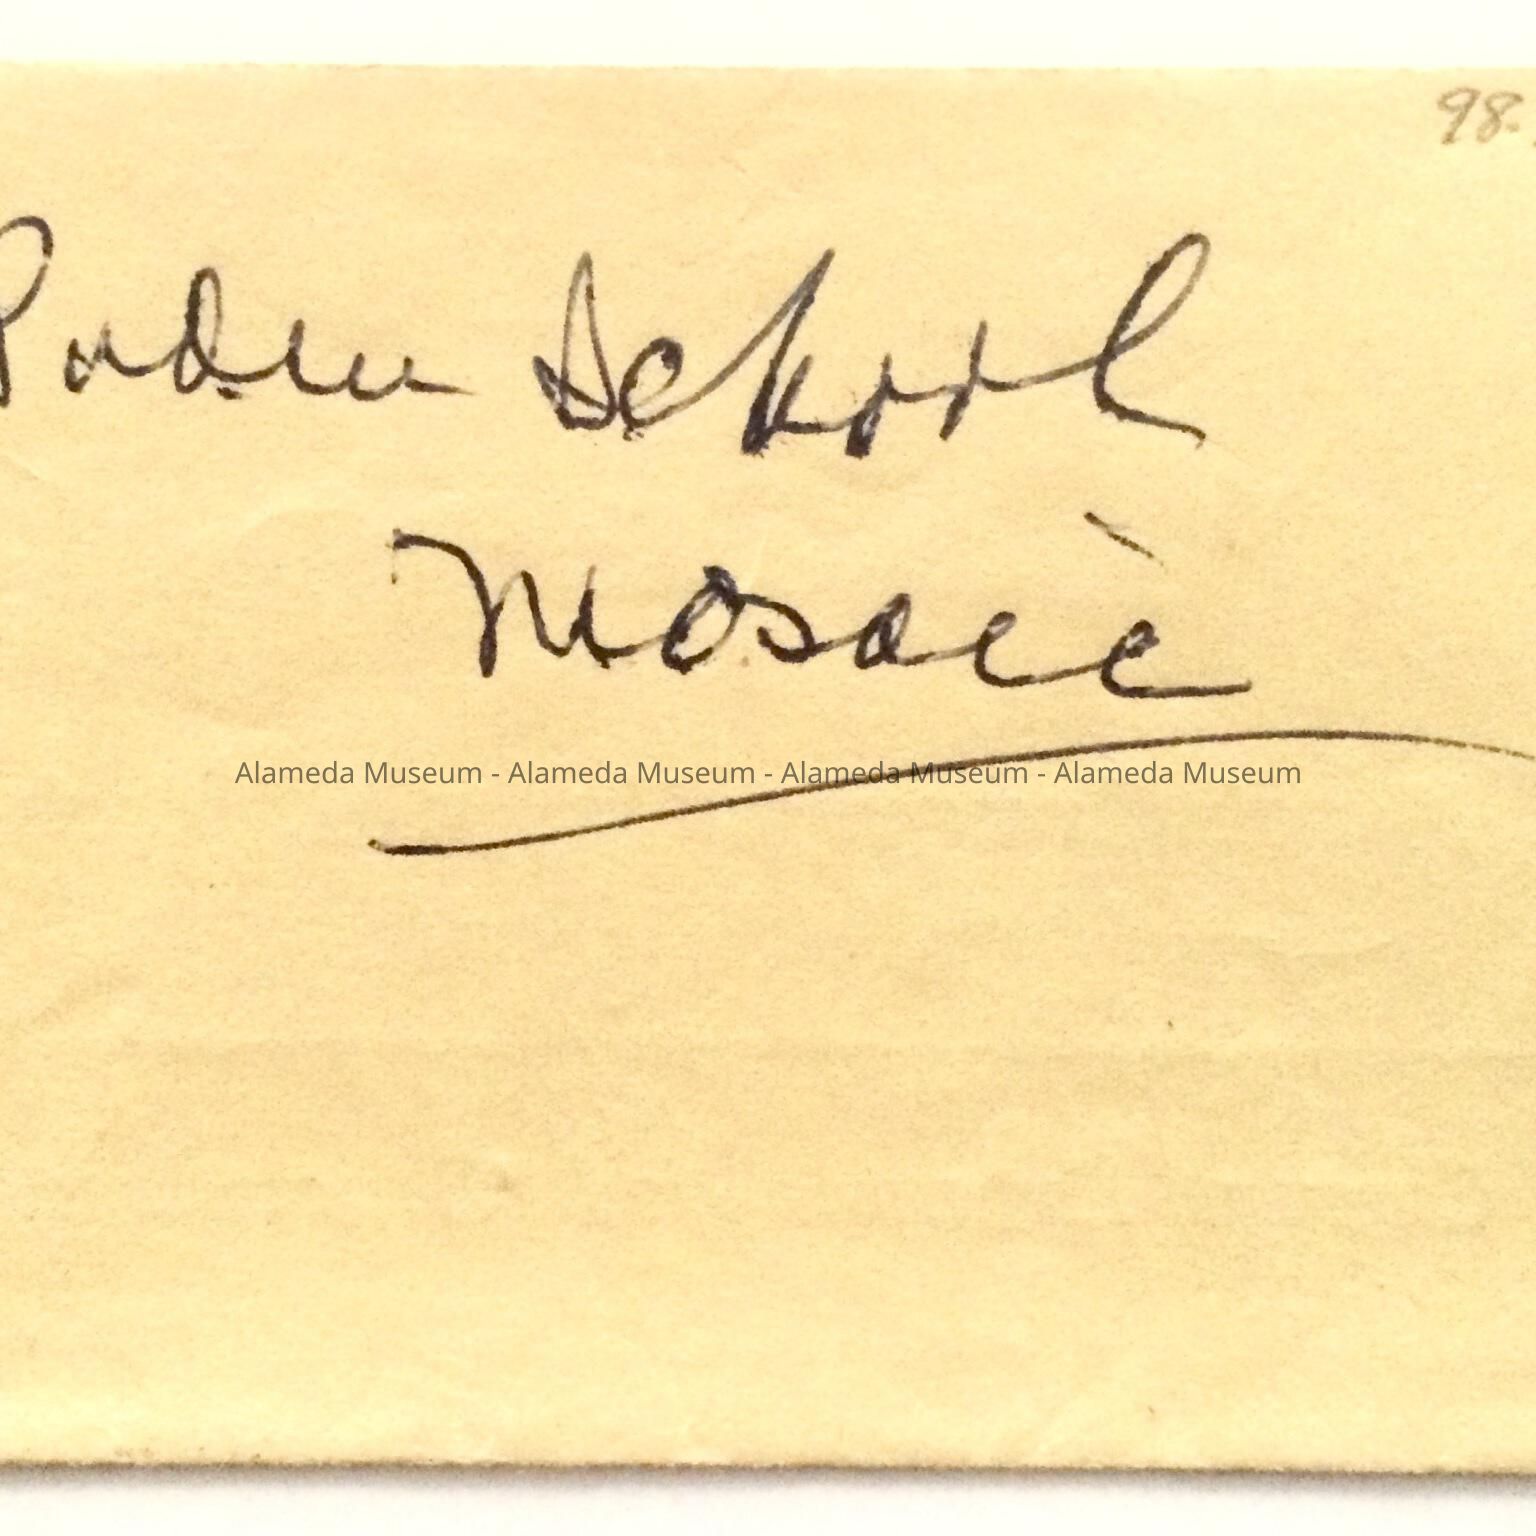 98.
Paden School
Mosaic
Alameda Museum - Alameda Museum - Alameda Museum - Alameda Museum